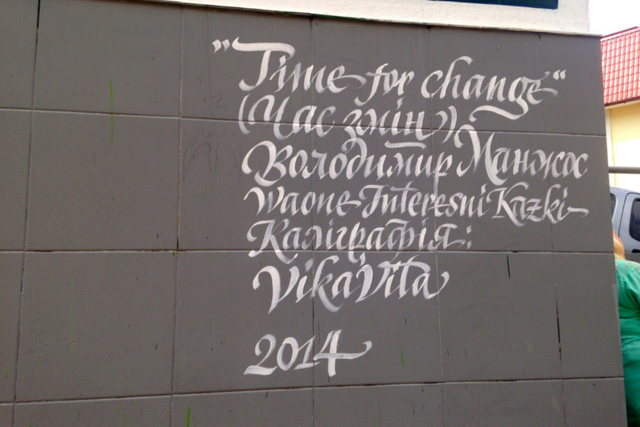 "Time for change"
(Час змін)
Володимир Манжос
Waone Interesni Kazki
Каліграфія:
Vika Vita
2014